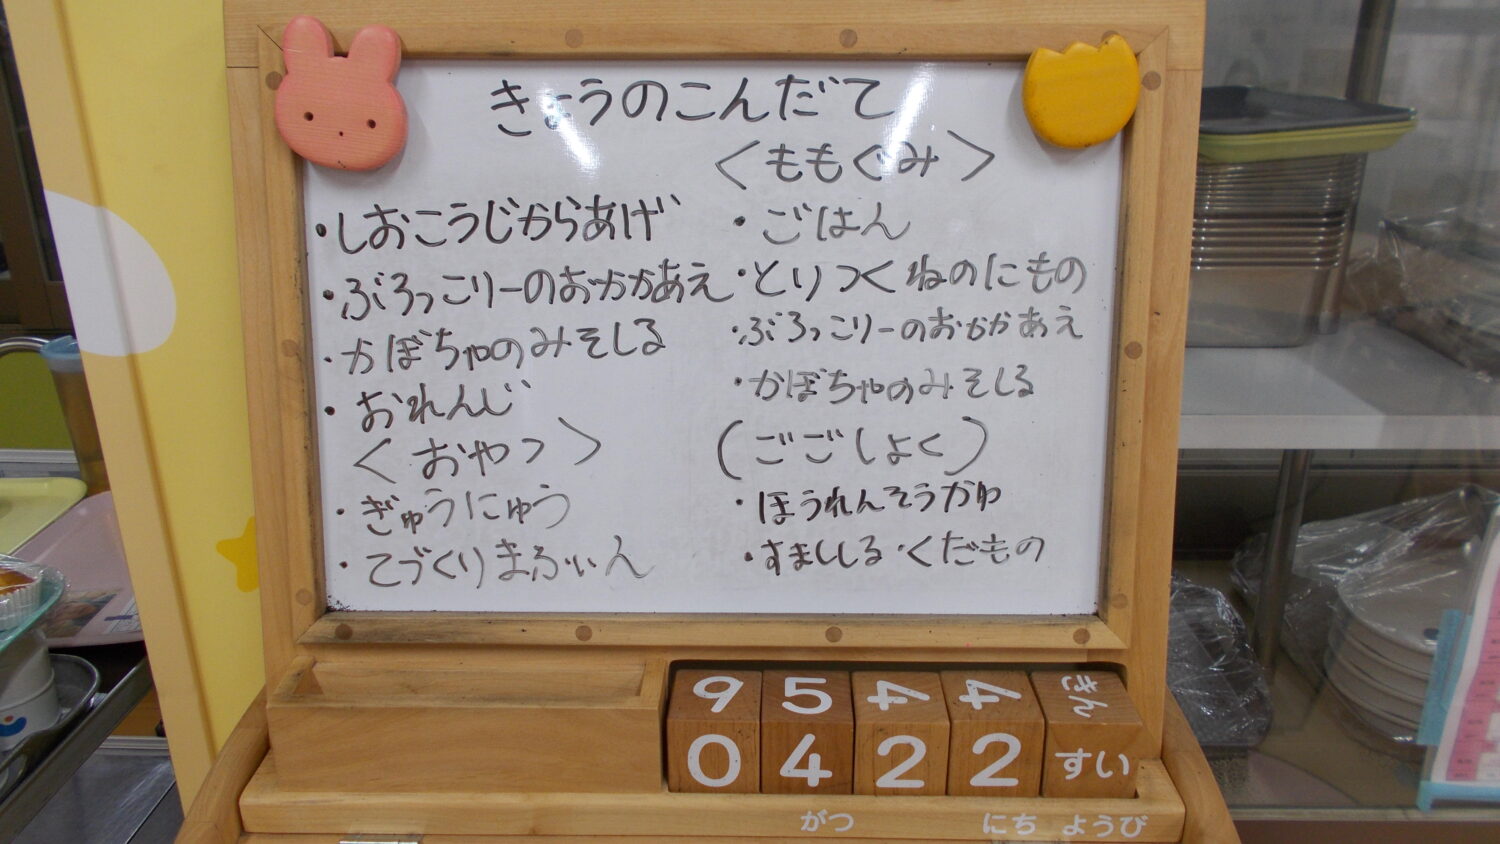 きょうのこんだて
・しおこうじからあげ
・ぶろっこりーのおかかあえ
・かぼちゃのみそしる
・おれんじ
＜おやつ＞
・ぎゅうにゅう
・てづくりまふぃん
＜ももぐみ＞
・ごはん
・とりつくねのにもの
・ぶろっこりーのおかかあえ
・かぼちゃのみそしる
（ごごしょく）
・ほうれんそうがゆ
・すましじる・くだもの
9 5 4 4 きん
0 4 2 2 すい
がつ にち ようび